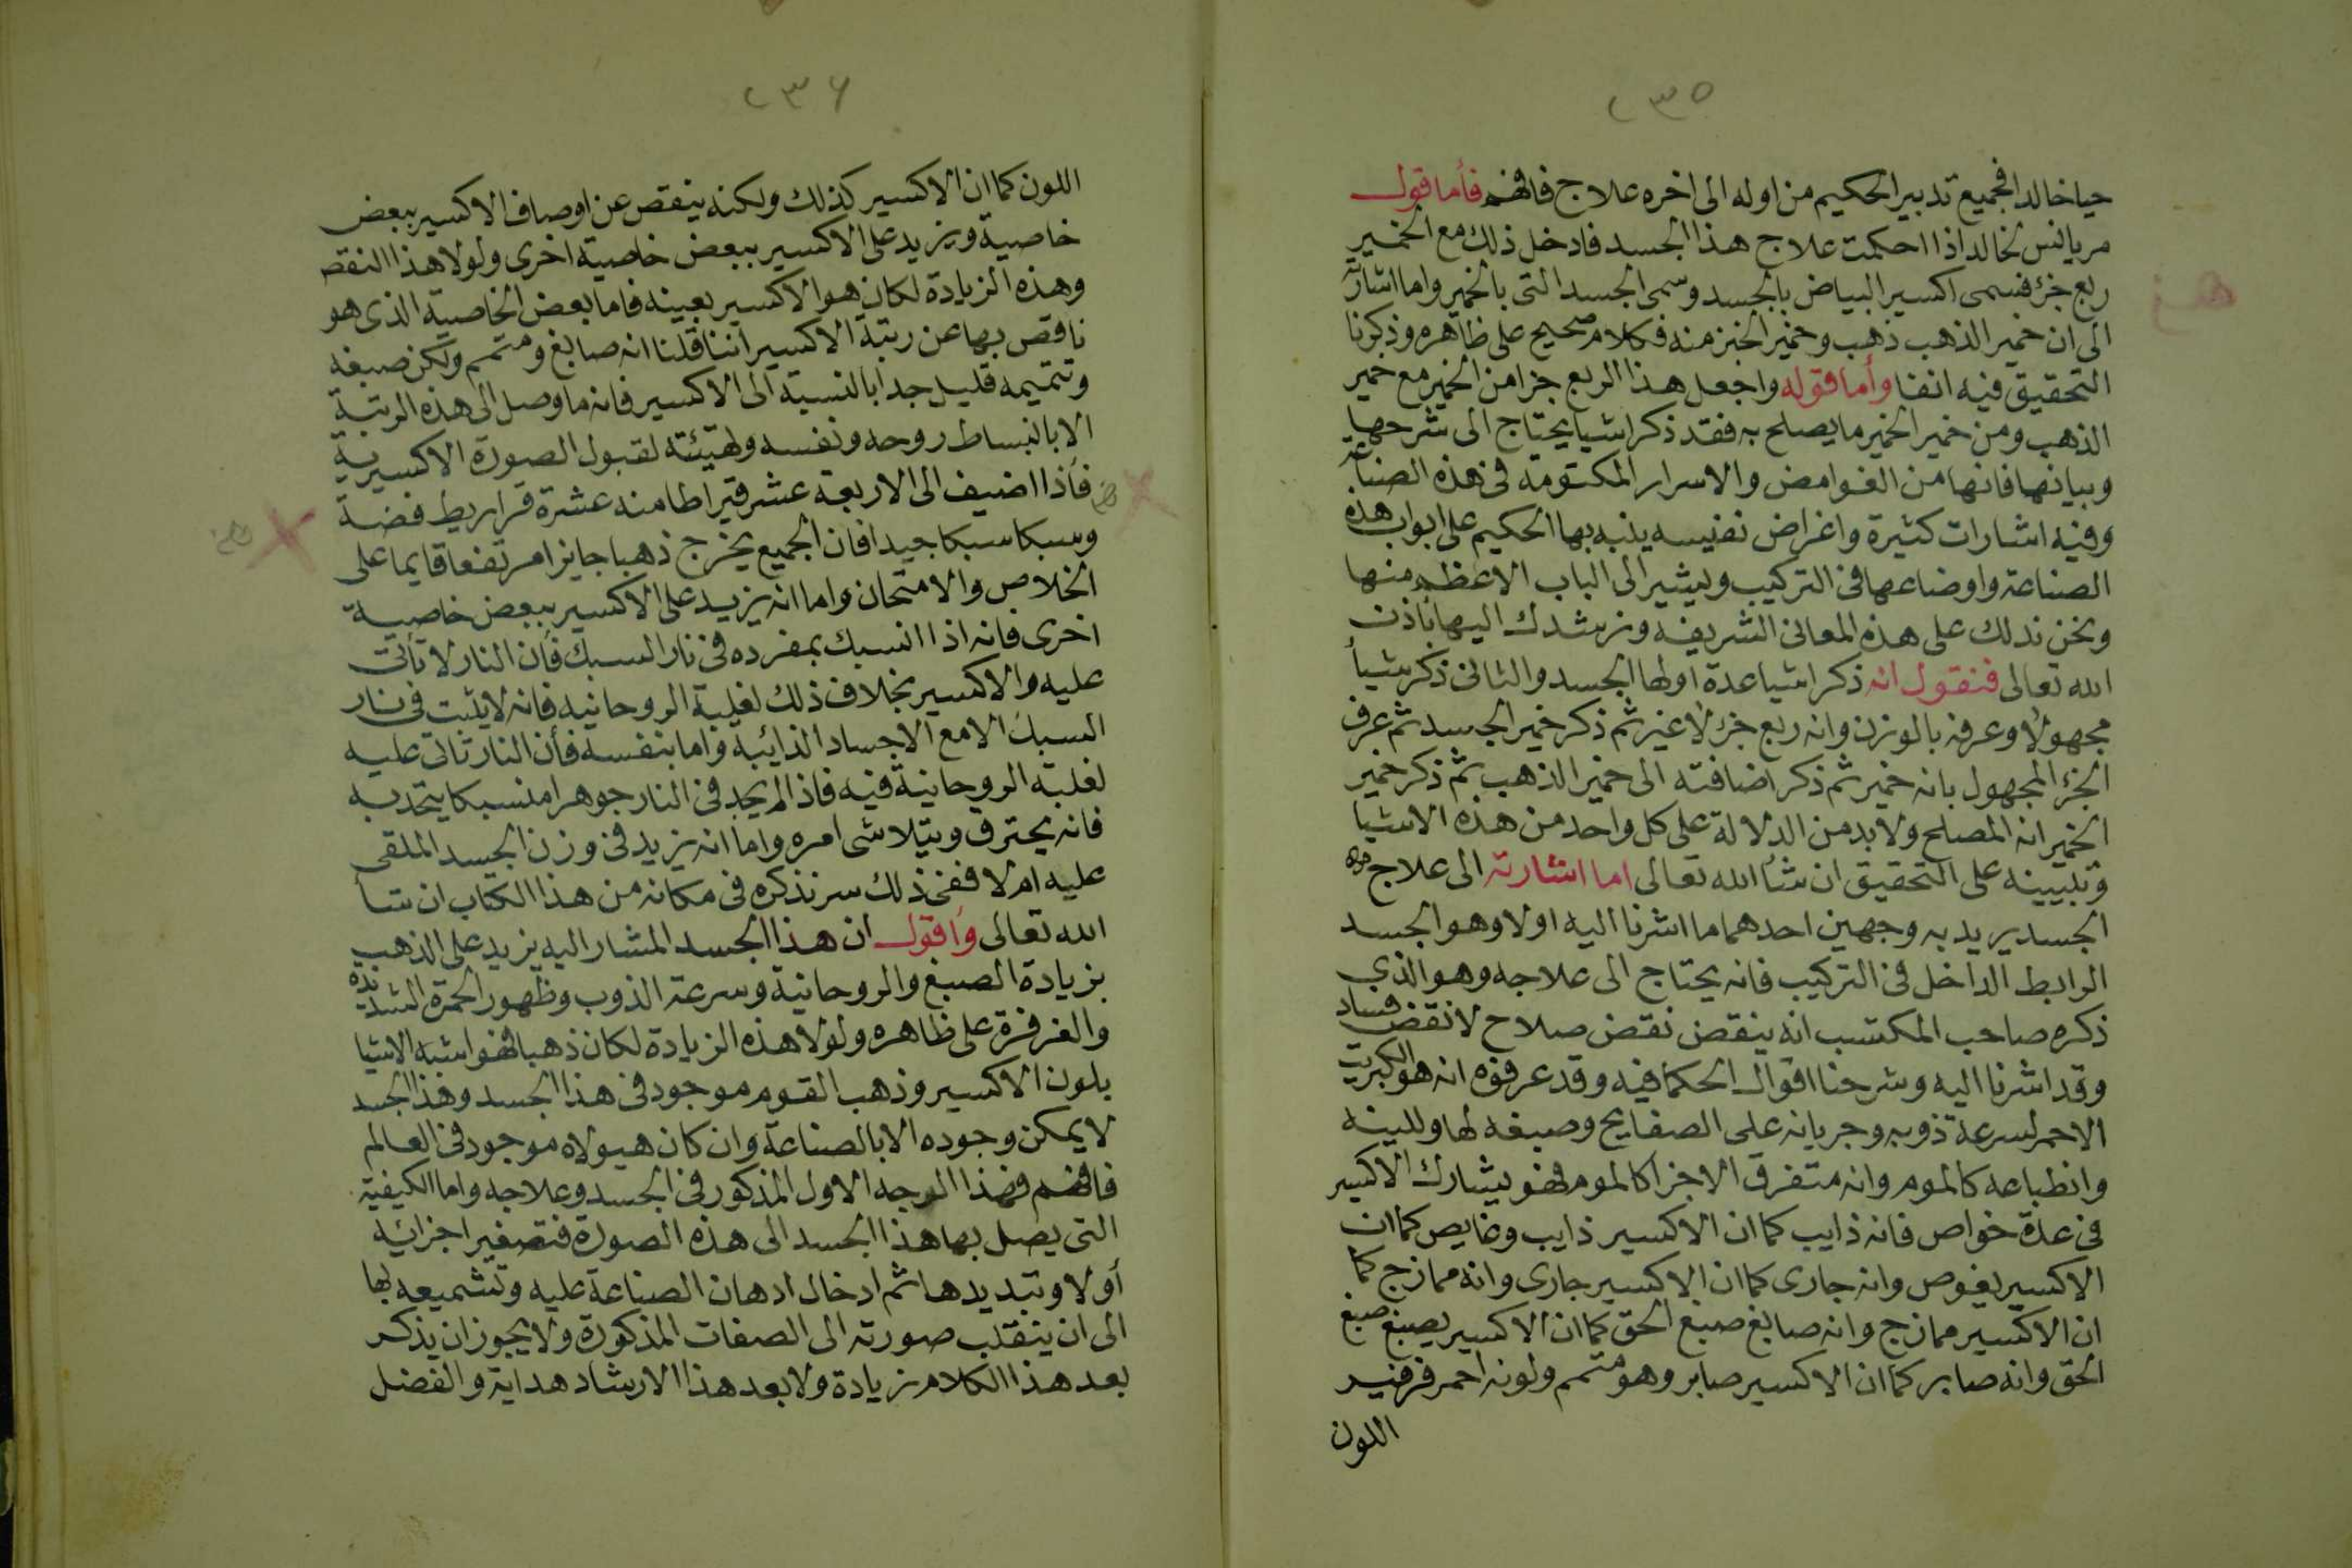 ٢٣٥
حيا خالدا فجميع تدبير الحكيم من اوله الى اخره علاج فافهم فأما قول
مريانس لخالد اذا احكمت علاج هذا الجسد فادخل ذلك مع الخمير
ربع جزء فسمى اكسير البياض بالجسد وسمى الجسد التى بالخمير واما اشارته
الى ان خمير الذهب ذهب وخمير الخبز منه فكلام صحيح على ظاهره وذكرنا
التحقيق فيه انفا وأما قوله واجعل هذا الربع جزا من الخمير مع خمير
الذهب ومن خمير الخمير ما يصلح به فقد ذكر اشيا يحتاج الى شرحها
وبيانها فانها من الغوامض والاسرار المكتومة فى هذه الصناعة
وفيه اشارات كثيرة واغراض نفيسه ينبه بها الحكيم على ابواب هذه
الصناعة واوضاعها فى التركيب ويشير الى الباب الاعظم منها
ونحن ندلك على هذه المعانى الشريفه ونرشدك اليها باذن
الله تعالى فنقول انه ذكر اشيا عدة اولها الجسد والثانى ذكر شيأ
مجهولا وعرفه بالوزن وانه ربع جزء لا غير ثم ذكر خمير الجسد ثم عرف
الجزء المجهول بانه خمير ثم ذكر اضافته الى خمير الذهب ثم ذكر خمير
الخمير انه المصلح ولا بد من الدلالة على كل واحد من هذه الاشيا
وتبيينه على التحقيق ان شأ الله تعالى اما اشارته الى علاج هذه
الجسد يريد به وجهين احدهما ما اشرنا اليه اولا وهو الجسد
الرابط الداخل فى التركيب فانه يحتاج الى علاجه وهو الذى
ذكره صاحب المكتسب انه ينقض نقض صلاح لا نقض فساد
وقد اشرنا اليه وشرحنا اقوال الحكما فيه وقد عرفوه انه هو الكبريت
الاحمر لسرعة ذوبه وجريانه على الصفايح وصبغه لها وللينه
وانطباعه كالموم وانه متفرق الاجزا كالموم فهو يشارك الاكسير
فى عدة خواص فانه ذايب كما ان الاكسير ذايب وغايص كما ان
الاكسير يغوص وانه جارى كما ان الاكسير جارى وانه ممازج كما
ان الاكسير ممازج وانه صابغ صبغ الحق كما ان الاكسير يصبغ صبغ
الحق وانه صابر كما ان الاكسير صابر وهو متمم ولونه احمر فرفير
اللون
٢٣٦
اللون كما ان الاكسير كذلك ولكنه ينقص عن اوصاف الاكسير ببعض
خاصية ويزيد على الاكسير ببعض خاصية اخرى ولولا هذا النقص
وهذه الزيادة لكان هو الاكسير بعينه فاما بعض الخاصية الذى هو
ناقص بها عن رتبة الاكسير اننا قلنا انه صابغ ومتمم ولكن صبغه
وتتميمه قليل جدا بالنسبة الى الاكسير فانه ما وصل الى هذه الرتبة
الا بانبساط روحه ونفسه وتهيئته لقبول الصورة الاكسيرية
فأذا اضيف الى الاربعة عشر قيراطا منه عشرة قراريط فضة
وسبكا سبكا جيدا فان الجميع يخرج ذهبا جايزا مرتفعا قايما على
الخلاص والامتحان واما انه يزيد على الاكسير ببعض خاصية
اخرى فانه اذا انسبك بمفرده فى نار السبك فأن النار لا تأتى
عليه والاكسير بخلاف ذلك لغلبة الروحانيه فانه لا يثبت فى نار
السبك الا مع الاجساد الذائبة واما بنفسه فأن النار تاتى عليه
لغلبة الروحانية فيه فاذا لم يجد فى النار جوهرا منسبكا يتحد به
فانه يحترق ويتلاشى امره واما انه يزيد فى وزن الجسد الملقى
عليه ام لا ففى ذلك سر نذكره فى مكانه من هذا الكتاب ان شأ
الله تعالى وأقول ان هذا الجسد المشار اليه يزيد على الذهب
بزيادة الصبغ والروحانية وسرعة الذوب وظهور الحمرة الشديدة
والفرفرة على ظاهره ولولا هذه الزيادة لكان ذهبا فهو اشبه الاشيا
بلون الاكسير وذهب القوم موجود فى هذا الجسد وهذا الجسد
لا يمكن وجوده الا بالصناعة وان كان هيولاه موجود فى العالم
فافهم فهذا الوجه الاول المذكور فى الجسد وعلاجه واما الكيفية
التى يصل بها هذا الجسد الى هذه الصورة فتصغير اجزائه
أولا وتبديدها ثم ادخال ادهان الصناعة عليه وتشميعه بها
الى ان ينقلب صورته الى الصفات المذكورة ولا يجوز ان يذكر
بعد هذا الكلام زيادة ولا بعد هذا الارشاد هداية والفضل